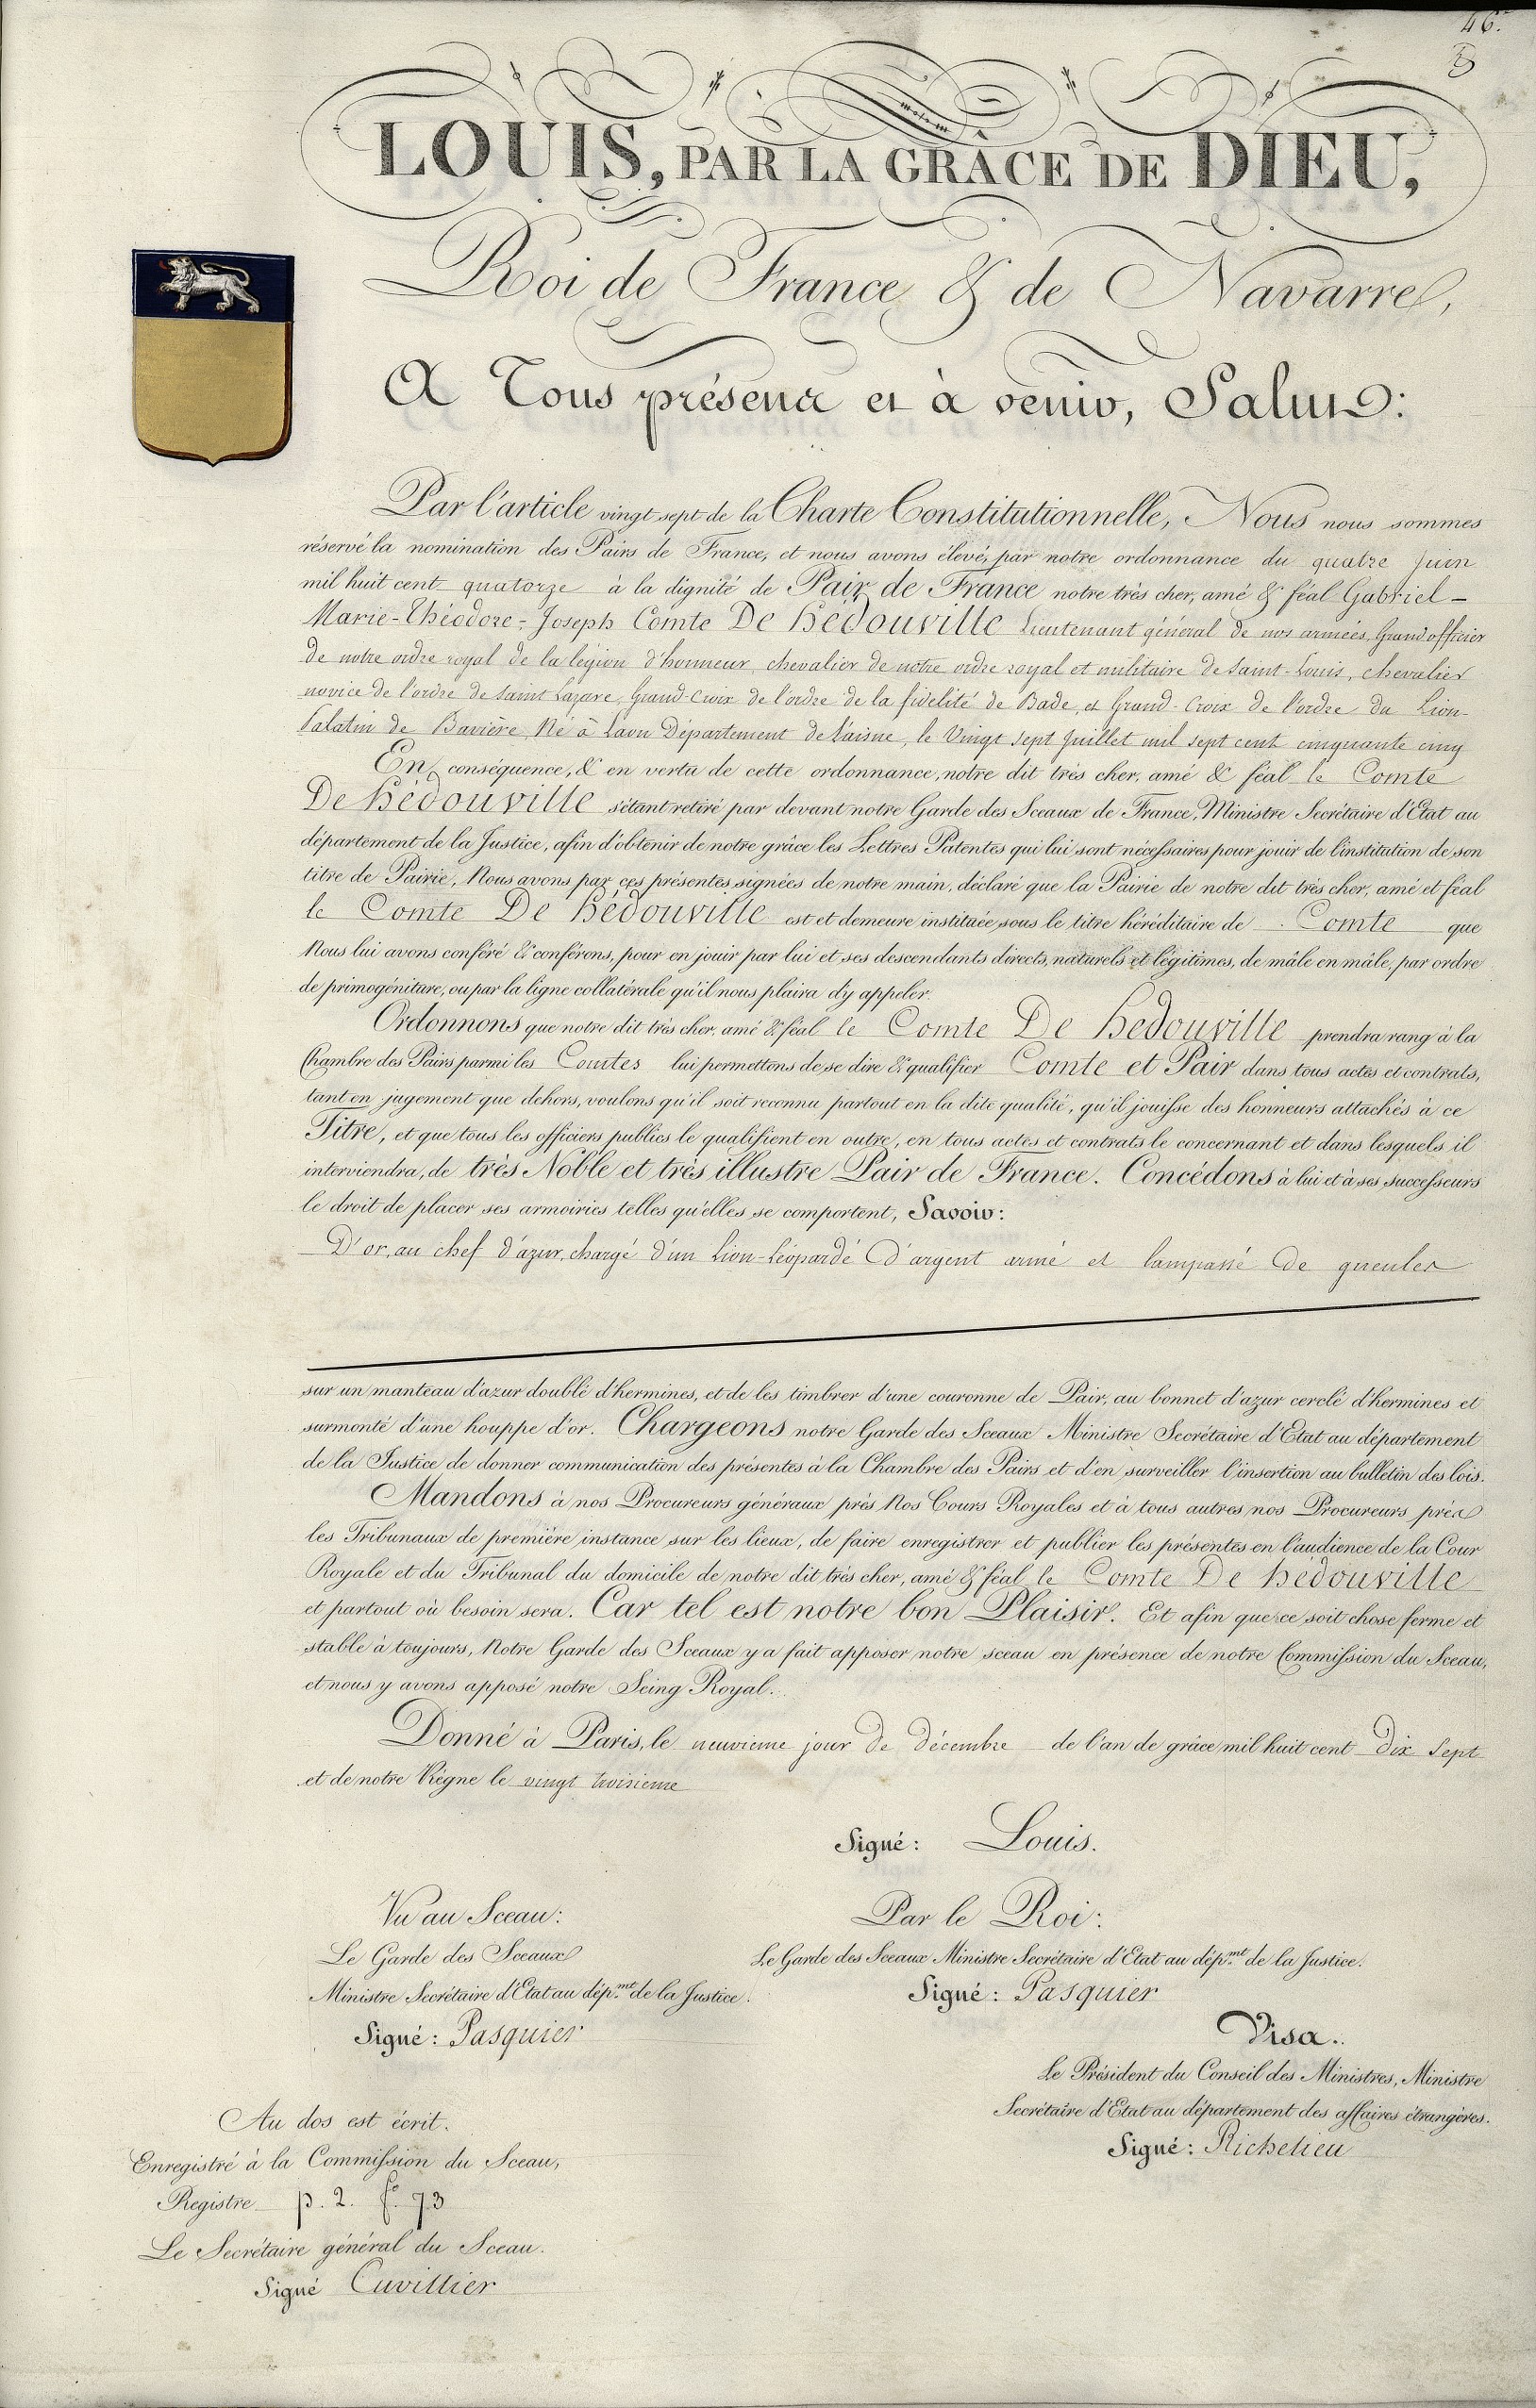 46.
LOUIS, PAR LA GRÂCE DE DIEU,
Roi de France & de Navarre,
A Tous présens et à venir, Salut:
Par l'article vingt sept de la Charte Constitutionnelle, Nous nous sommes
réservé la nomination des Pairs de France, et nous avons élevé, par notre ordonnance du quatre Juin
mil huit cent quatorze à la dignité de Pair de France notre très cher, amé & féal Gabriel-
Marie-Théodore-Joseph Comte De hédouville Lieutenant général de nos armées, Grand officier
de notre ordre royal de la légion d'honneur chevalier de notre ordre royal et militaire de Saint-Louis, chevalier
novice de l'ordre de Saint Lazare, Grand-Croix de l'ordre de la fidélité de Bade, et Grand-Croix de l'ordre du Lion-
Palatin de Bavière, Né à Laon Département de l'aisne, le Vingt sept Juillet mil sept cent cinquante cinq
En conséquence, & en vertu de cette ordonnance, notre dit très cher, amé & féal le Comte
De hédouville s'étant retiré par devant notre Garde des Sceaux de France, Ministre Secrétaire d'Etat au
département de la Justice, afin d'obtenir de notre grâce les Lettres Patentes qui lui sont nécessaires pour jouir de l'institution de son
titre de Pairie, Nous avons par ces présentes signées de notre main, déclaré que la Pairie de notre dit très cher, amé et féal
le Comte De hédouville est et demeure instituée sous le titre héréditaire de Comte que
Nous lui avons conféré & conférons, pour en jouir par lui et ses descendants directs, naturels et légitimes, de mâle en mâle, par ordre
de primogéniture, ou par la ligne collatérale qu'il nous plaira d'y appeler.
Ordonnons que notre dit très cher, amé & féal le Comte De hedouville prendra rang à la
Chambre des Pairs parmi les Comtes lui permettons de se dire & qualifier Comte et Pair dans tous actes et contrats,
tant en jugement que dehors, voulons qu'il soit reconnu partout en la dite qualité, qu'il jouisse des honneurs attachés à ce
Titre, et que tous les officiers publics le qualifient en outre, en tous actes et contrats le concernant et dans lesquels il
interviendra, de très Noble et très illustre Pair de France. Concédons à lui et à ses successeurs
le droit de placer ses armoiries telles qu'elles se comportent, Savoir:
D'or, au chef d'azur, chargé d'un Lion-Léopardé d'argent armé et lampassé de gueules
sur un manteau d'azur doublé d'hermines, et de les timbrer d'une couronne de Pair, au bonnet d'azur cerclé d'hermines et
surmonté d'une houppe d'or. Chargeons notre Garde des Sceaux Ministre Secrétaire d'Etat au département
de la Justice de donner communication des présentes à la Chambre des Pairs et d'en surveiller l'insertion au bulletin des lois.
Mandons à nos Procureurs généraux près Nos Cours Royales et à tous autres nos Procureurs près
les Tribunaux de première instance sur les lieux, de faire enregistrer et publier les présentes en l'audience de la Cour
Royale et du Tribunal du domicile de notre dit très cher, amé & féal le Comte De hédouville
et partout où besoin sera. Car tel est notre bon Plaisir. Et afin que ce soit chose ferme et
stable à toujours, Notre Garde des Sceaux y a fait apposer notre sceau en présence de notre Commission du Sceau,
et nous y avons apposé notre Seing Royal.
Donné à Paris, le neuvieme jour de décembre de l'an de grâce mil huit cent dix sept
et de notre Règne le vingt troisieme
Signé: Louis.
Vu au Sceau:
Le Garde des Sceaux
Ministre Secrétaire d'Etat au dép.mt de la Justice.
Signé: Pasquier
Par le Roi:
Le Garde des Sceaux Ministre Secrétaire d'Etat au dép.mt de la Justice.
Signé: Pasquier
Visa.
Le Président du Conseil des Ministres, Ministre
Secrétaire d'Etat au département des affaires étrangères.
Signé: Richelieu
Au dos est écrit.
Enregistré à la Commission du Sceau,
Registre p. 2. fo. 73
Le Secrétaire général du Sceau.
Signé Cuvillier